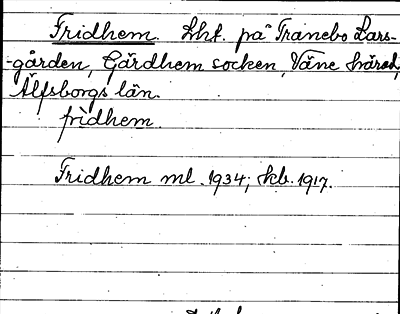 Fridhem. Lht. på Tranebo Lars-
-gården, Gärdhem socken, Väne härad,
Älfsborgs län.
frìdhem.
Fridhem ml. 1934; kb. 1917.